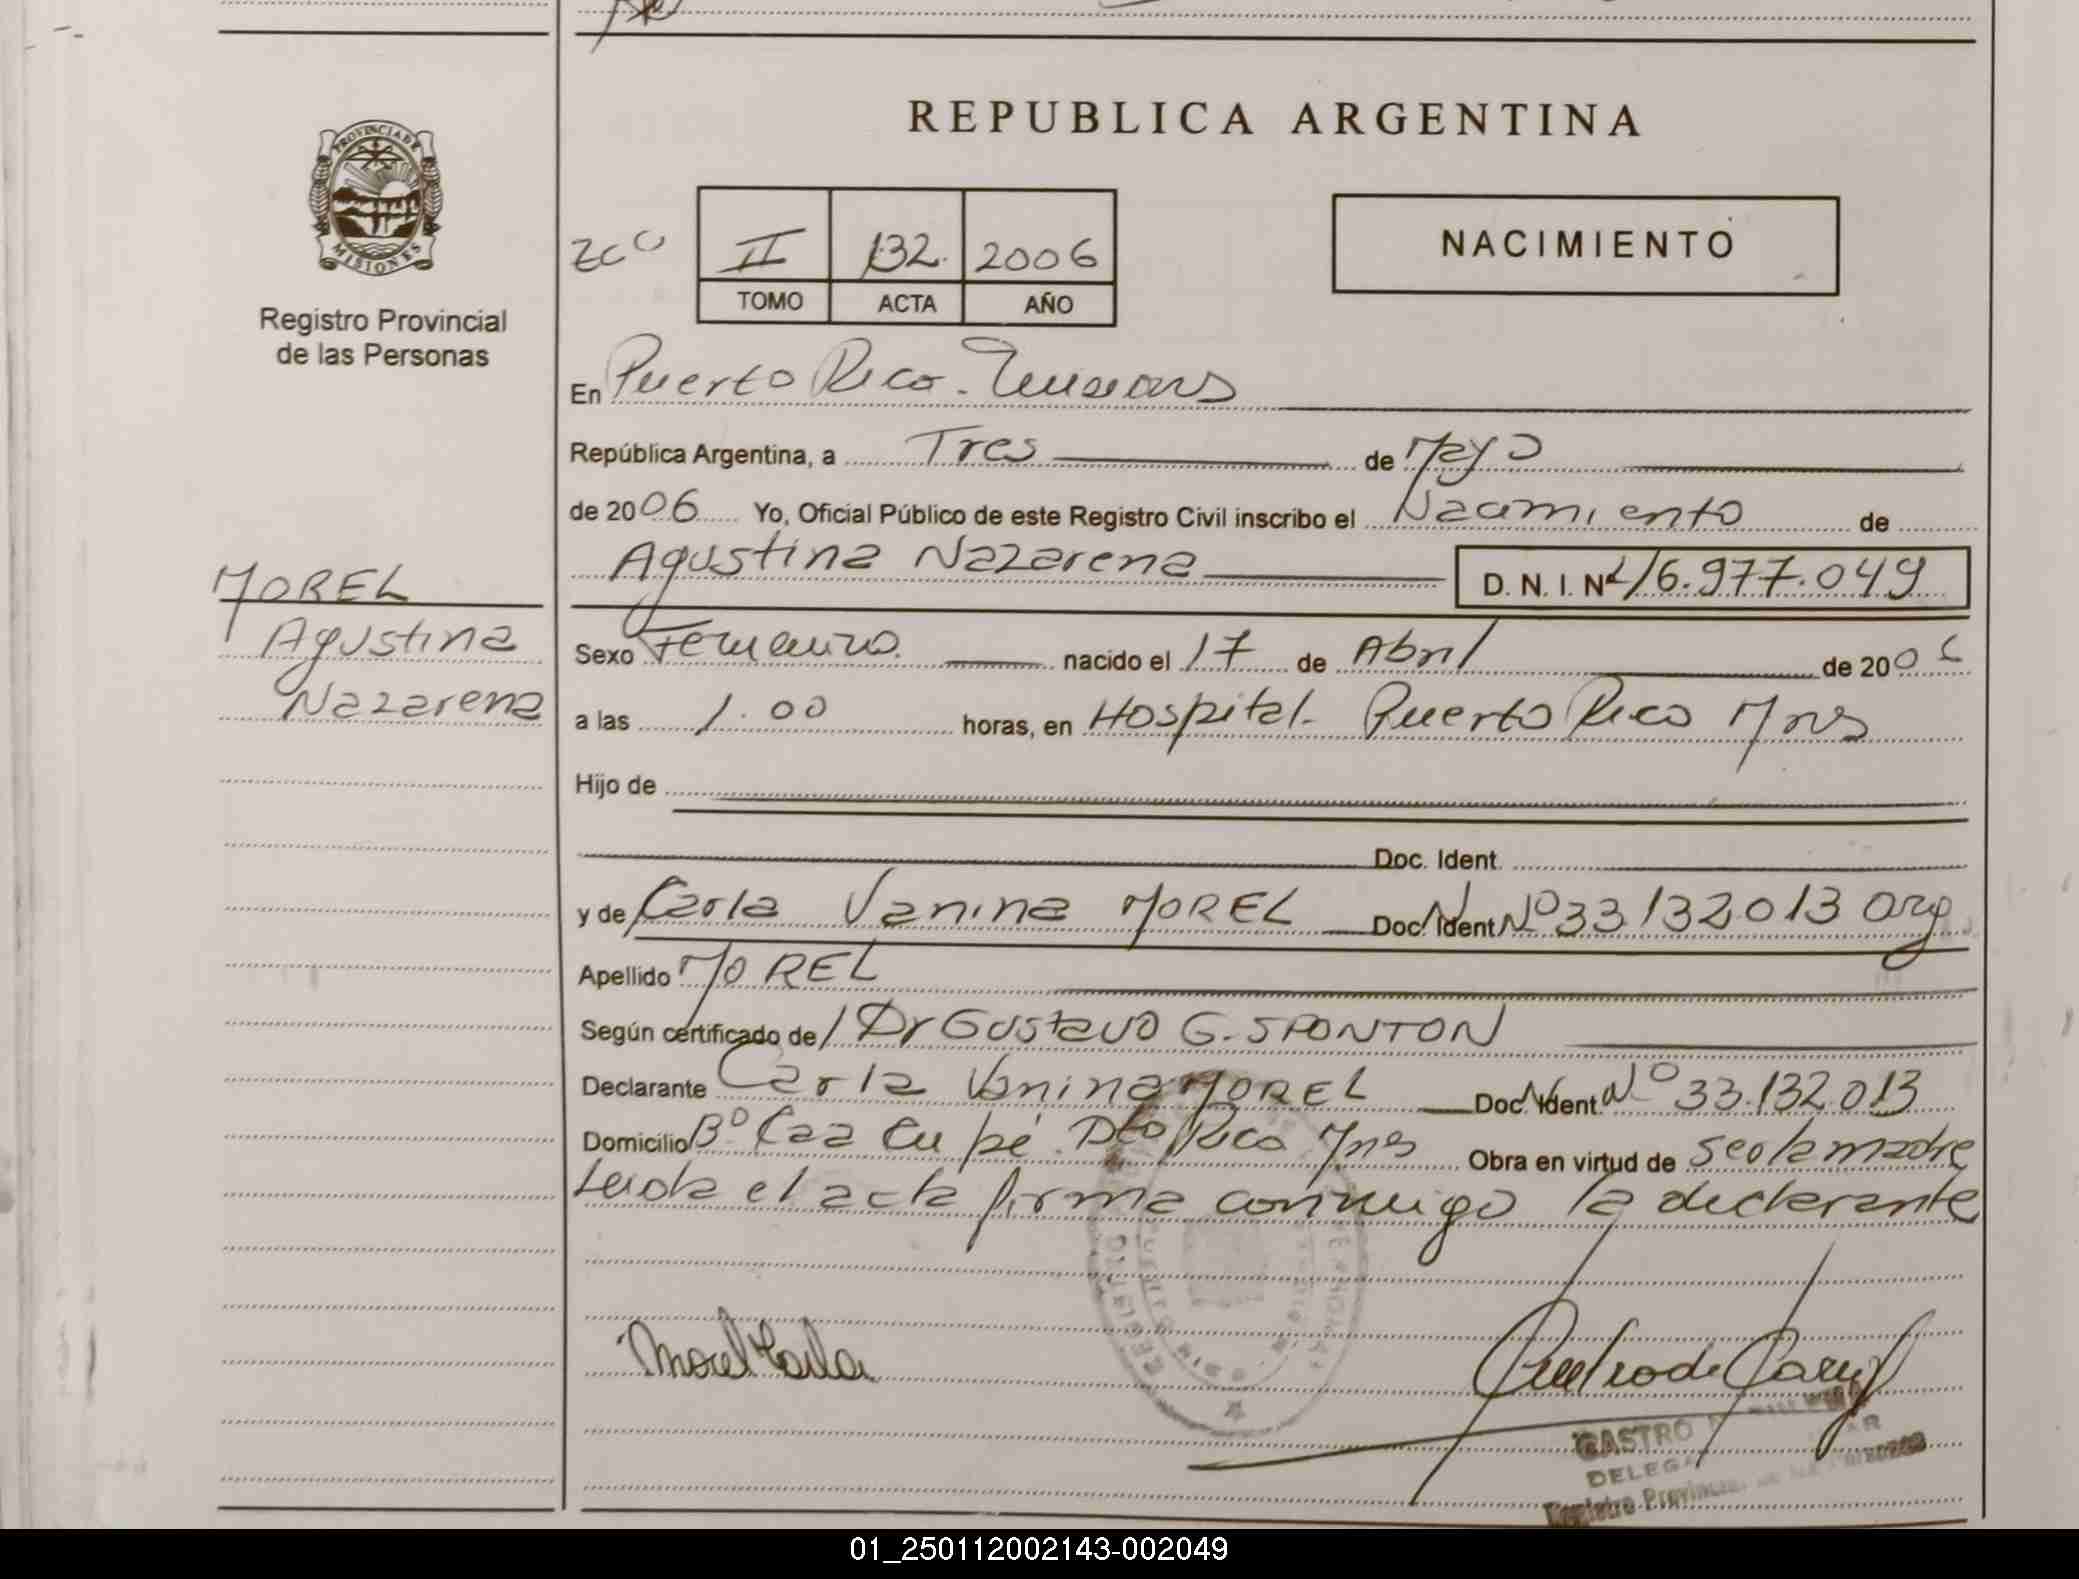 REPUBLICA ARGENTINA
PROVINCIA DE
MISIONES
Registro Provincial
de las Personas
II 132. 2006
TOMO ACTA AÑO
NACIMIENTO
En Puerto Rico. Misiones
República Argentina, a Tres de Mayo
de 2006 Yo, Oficial Público de este Registro Civil inscribo el Nacimiento de
Agustina Nazarena D. N. I. Nº 46.977.049
MOREL
Agustina
Nazarena
Sexo Femenino. nacido el 17 de Abril de 2006
a las 1.00 horas, en Hospital. Puerto Rico Mns
Hijo de
Doc. Ident.
y de Carla Vanina MOREL Doc. Ident. Nº 33132013 Arg
Apellido MOREL
Según certificado de Dr Gustavo G. SPONTON
Declarante Carla Vanina MOREL Doc. Ident. Nº 33.132.013
Domicilio Bº Caa Cu pé. Pto Rico Mns Obra en virtud de ser la madre
Leida el acta firma conmigo la declarante
Morel Carla
CASTRO
DELEGA
Registro Provincial de las Personas
01_250112002143-002049